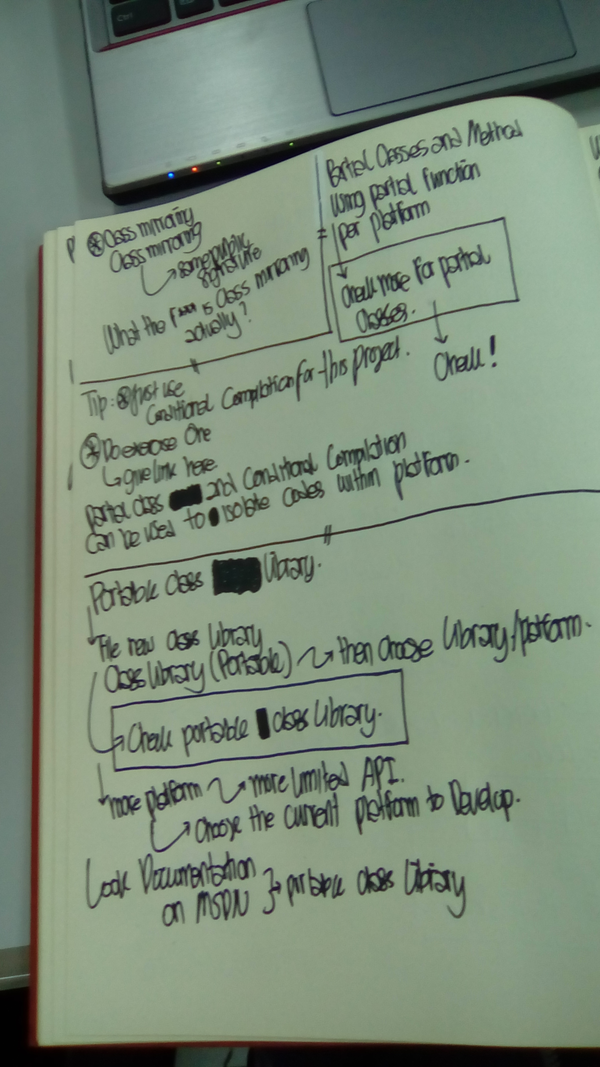 Class mirroring
Class mirroring
same public
signature
What the is Class mirroring
actually?
Partial Classes and Method
Using partial function
per platform
Check more for partial
Classes.
Check!
Tip: Just use
Conditional Compilation for this project.
Do exercise One
give link here
partial class and Conditional Compilation
can be used to isolate codes within platform.
Portable class Library.
File new class Library
Class Library (Portable) then choose Library/platform.
Check portable class Library.
more platform more limited API.
Choose the current platform to Develop.
Look Documentation
on MSDN } portable class Library